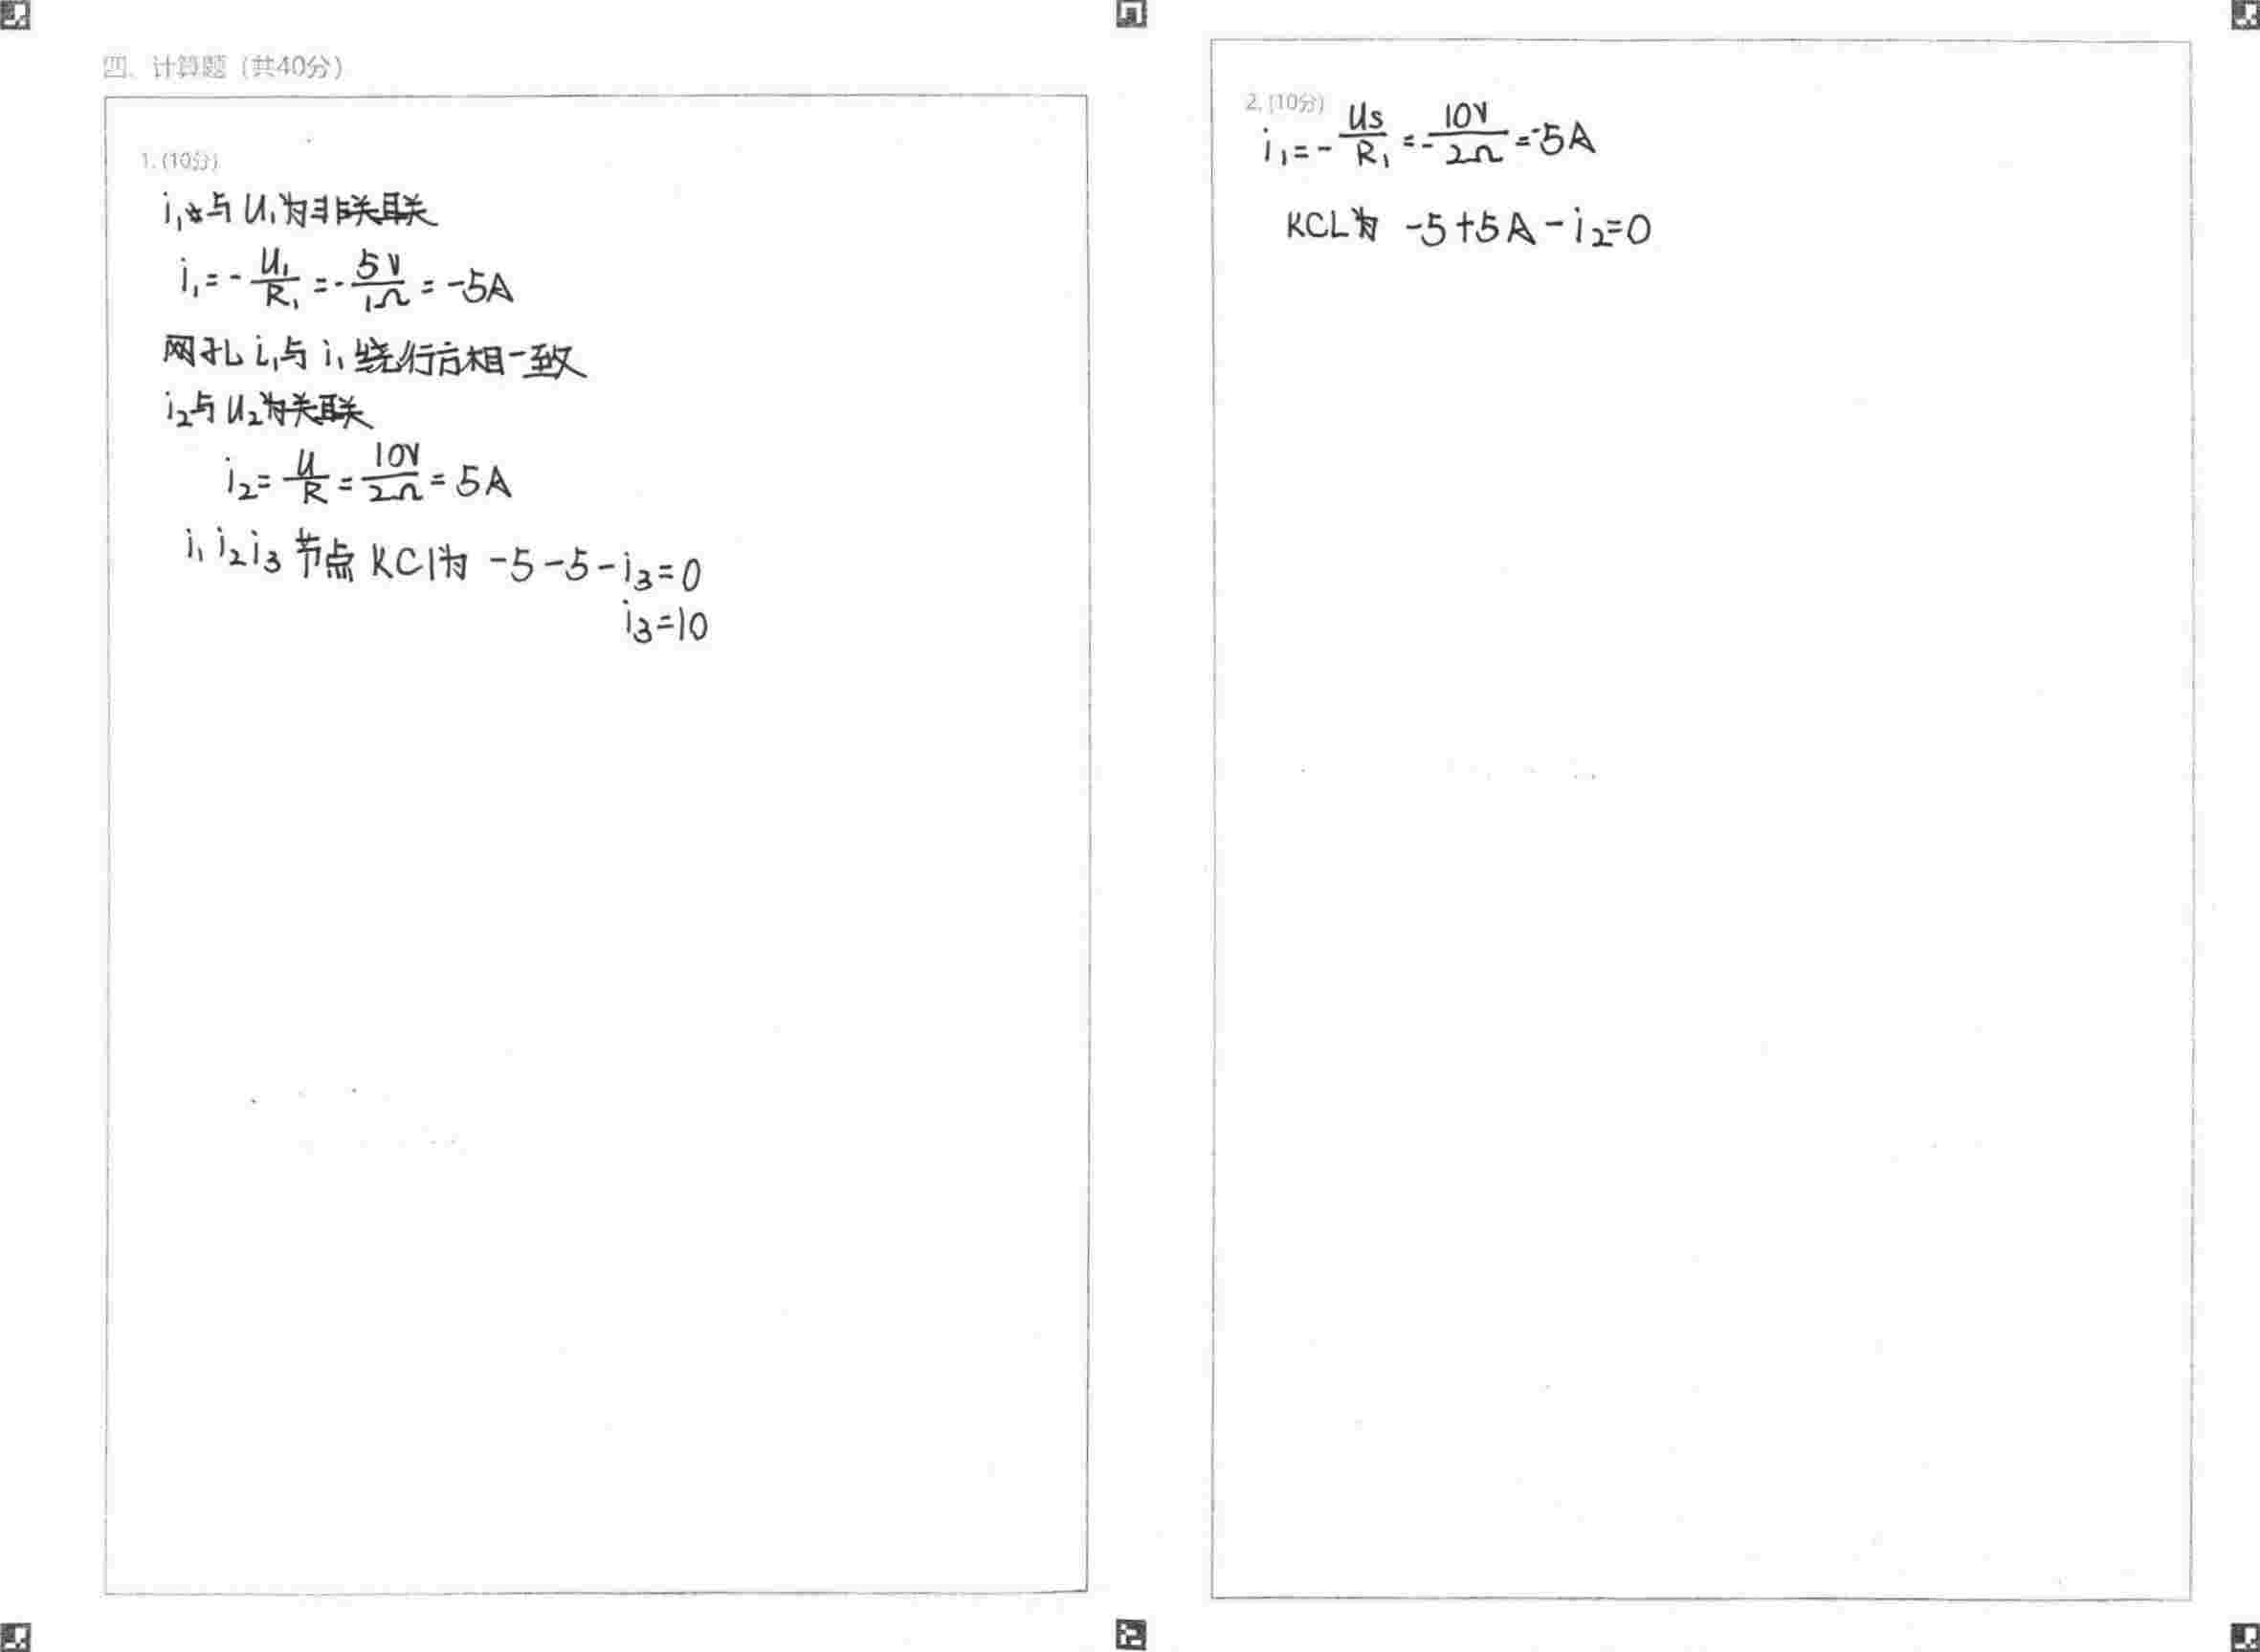 四、计算题（共40分）
1. (10分)
i₁与U₁为非关联
i₁=-U₁/R₁=-5V/1Ω=-5A
网孔i₁与i₁绕行方相一致
i₂与U₂为关联
i₂=U/R=10V/2Ω=5A
i₁ i₂ i₃ 节点 KCl为 -5-5-i₃=0
i₃=10
2. (10分)
i₁=-Us/R₁=-10V/2Ω=-5A
KCL为 -5+5A-i₂=0